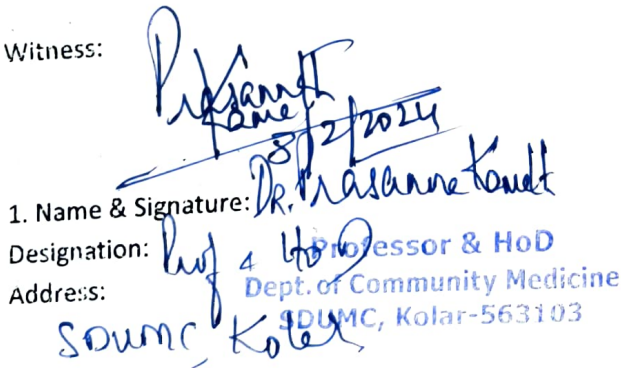 Witness:
8/2/2024
1. Name & Signature: Dr. Prasanna Kamath
Designation: Prof & HoD
Professor & HoD
Address:
Dept. of Community Medicine
SDUMC, Kolar-563103
SDUMC Kolar